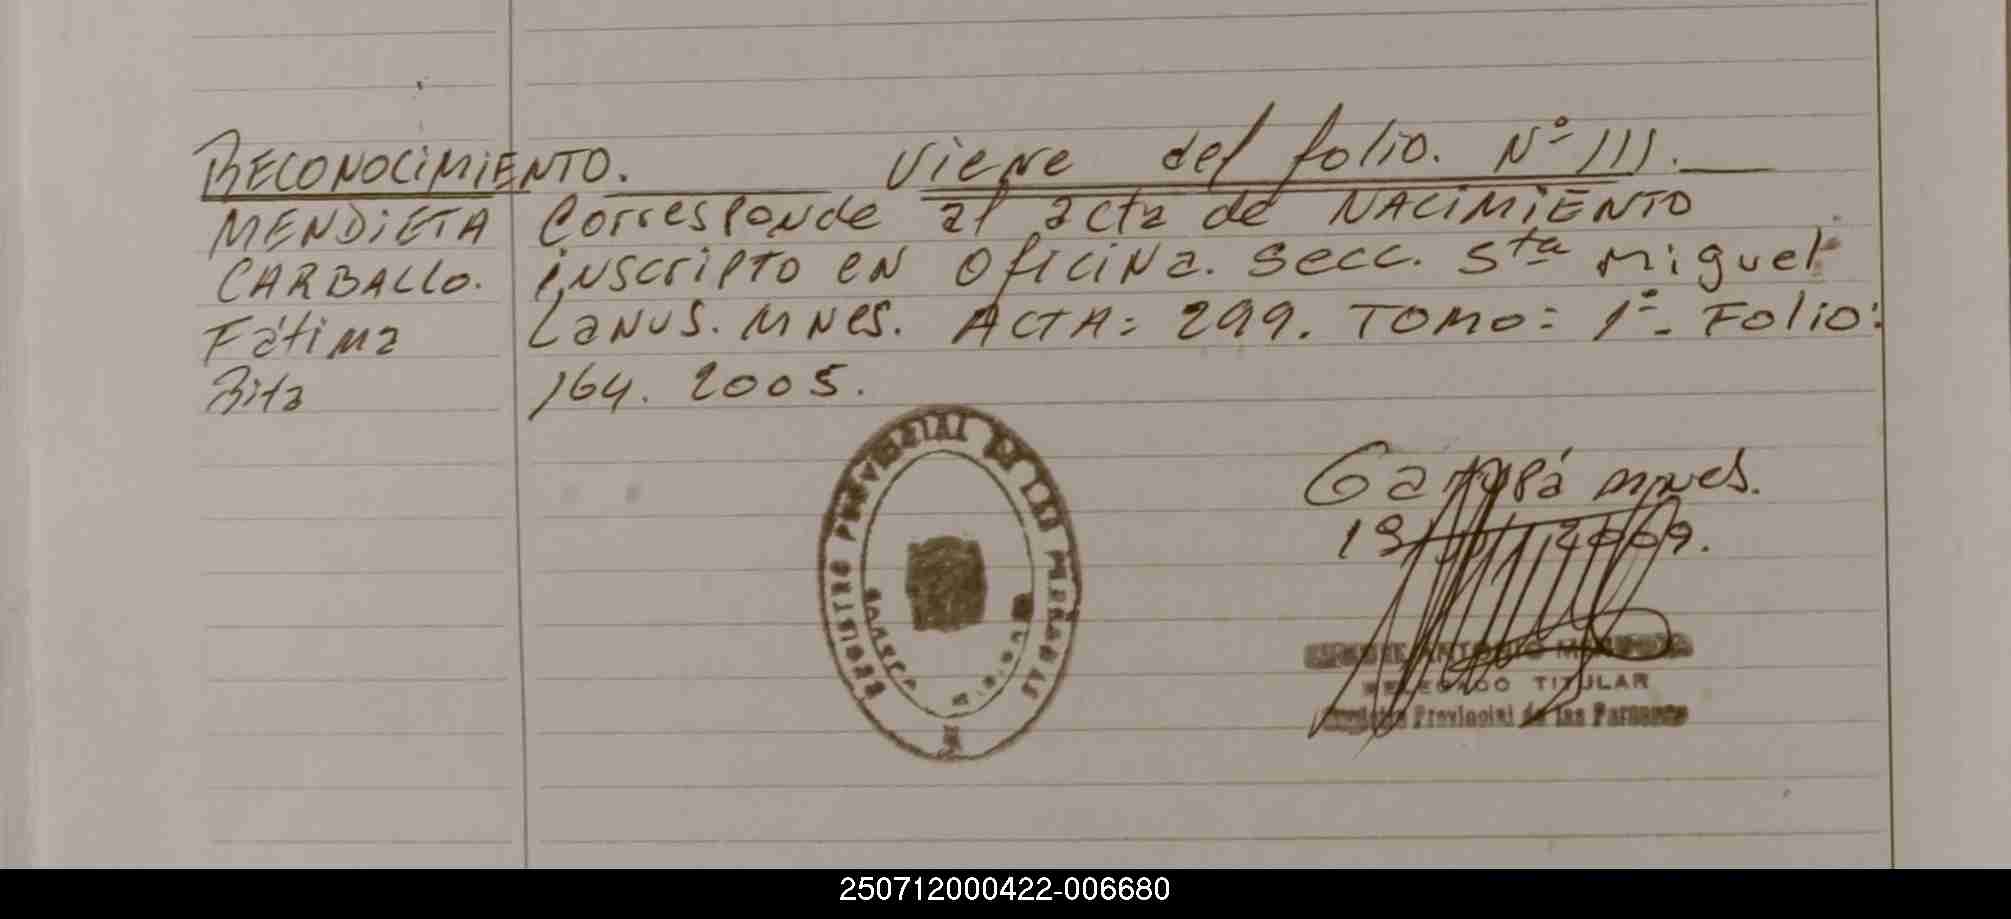 RECONOCIMIENTO. Viene del folio. Nº 111.
MENDIETA Corresponde al acta de NACIMIENTO
CARBALLO. inscripto en Oficina. Secc. Sta Miguel
Fátima Lanus. Mnes. ACTA: 299. TOMO: 1º. Folio:
Rita 164. 2005.
Garupá mnes.
2009.
REGISTRO PROVINCIAL DE LAS PERSONAS
ANTONIO
DELEGADO TITULAR
Registro Provincial de las Personas
250712000422-006680